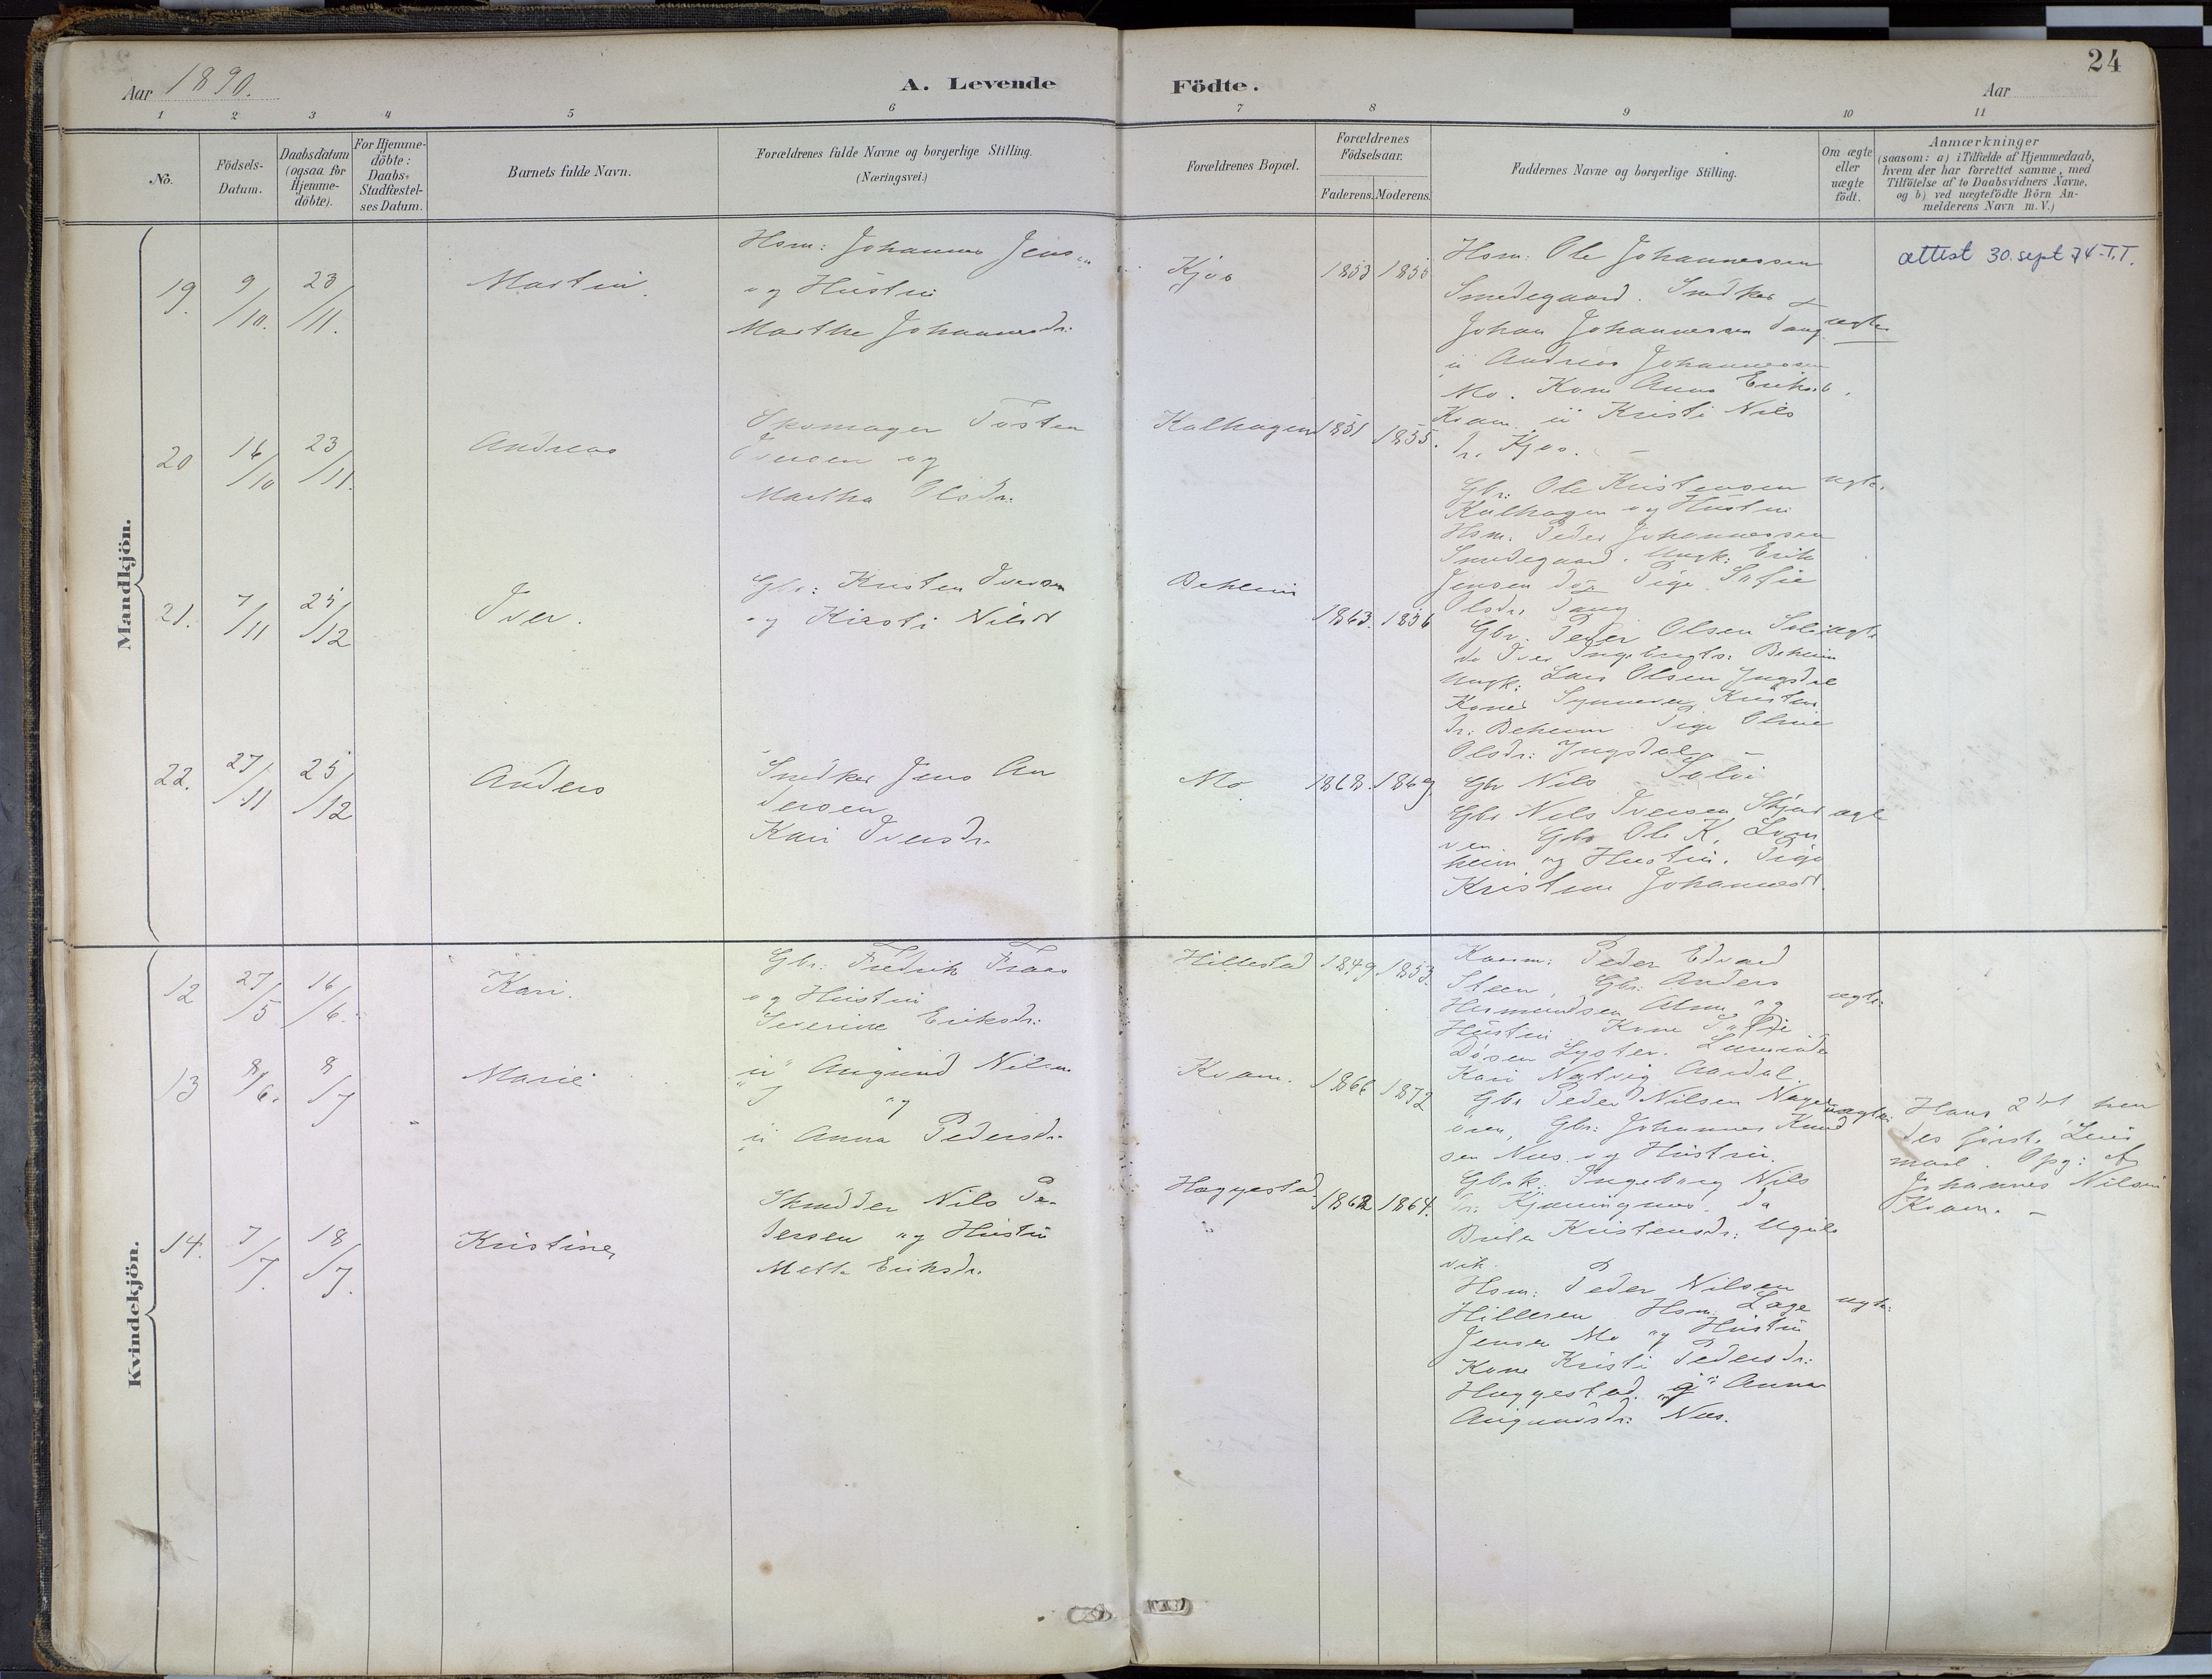 24
Aar 1890.
A. Levende Födte.
Aar
1 2 3 4 5 6 7 8 9 10 11
No.
Födsels-
Datum.
Daabsdatum
(ogsaa for
Hjemme-
döbte).
For Hjemme-
döbte:
Daabs-
Stadfæstel-
ses Datum.
Barnets fulde Navn.
Forældrenes fulde Navne og borgerlige Stilling.
(Næringsvei.)
Forældrenes Bopæl.
Forældrenes
Födselsaar.
Faderens. Moderens.
Faddernes Navne og borgerlige Stilling.
Om ægte
eller
uægte
födt.
Anmærkninger
(saasom: a) i Tilfælde af Hjemmedaab,
hvem der har forrettet samme, med
Tilföielse af to Daabsvidners Navne,
og b) ved uægtefödte Börn An-
melderens Navn m. V.)
Mandkjön.
19. 9/10. 23/11.
Martin.
Hsm: Johannes Jens
og Hustru
Marthe Johannesdr:
Kjos
1853 1855
Hsm: Ole Johannessen
Smedegaard. Snedker
Johan Johannessen Tang
ü Andreas Johannessen
Mo. Kone Anna Eriksd.
Kvam ü Kristi Nils
dr. Kjos. -
ægte
attest 30. sept 74 - T.T.
20 16/10 23/11.
Andreas
Skomager Tosten
Iversen og
Martha Olsdr:
Kalhagen
1851 1855.
Gbr: Ole Kristensen
Kalhagen og Hustru
Hsm. Peder Johannessen
Smedegaard. Ungk: Erik
Jensen do Pige Sofie
Olsdr. Tang
ægte.
21. 7/11 25/12
Iver.
Gbr: Kristen Iversen
og Kirsti Nilsd
Beheim
1863. 1856
Gbr. Peder Olsen Solvi
do Iver Ingebrigts: Beheim
Ungk: Lars Olsen Yngsdal
Kone Synneva Kristens
dr: Beheim Pige Oline
Olsdr: Yngsdal -
ægte
22. 27/11 25/12
Anders
Snedker Jens An
dersen
Kari Iversdr.
Mo
1868. 1869.
Gbr Nils Solvi
Gbr Nils Iversen Skjær
ven. Gbr Ole K. Lom
heim og Hustru. Pige
Kristine Johannesd.
ægte
Kvindekjön.
12 27/5 16/6.
Kari.
Gbr: Fredrik Fraas
og Hustru
Severine Eriksdr:
Hillestad
1849. 1853.
Kaarm: Peder Edvard
Steen, Gbr: Anders
Hermundsen Alme og
Hustru Kone
Døsen Lyster. Lærerinde
Kari Natvig Aardal
ægte:
13 8/6. 8/7
Marie
ü Augund Nilsen
og
ü Anna Pedersdr.
Kvam.
1866 1872
Gbr Peder Nilsen Nager
øren, Gbr: Johannes Knud
sen Næs og Hustru.
Gbrk: Ingeborg Nils
dr: Kjørningnes. do
Brita Kristensdr: Uguls
vik
uægte.
Hans 2det hen
des første Leier
maal. Opg: af
Johannes Nilsen
Kvam. -
14. 7/7. 18/7.
Kristine
Skrædder Nils Pe-
dersen og Hustru
Metta Eriksdr.
Haggestad
1862 1864.
Hsm: Peder Nilsen
Hilleren Hsm: Lage
Jensen Mo og Hustru
Kone Kristi Pedersdr:
Haggestad. og Anna
Augundsdr: Næs.
ægte: